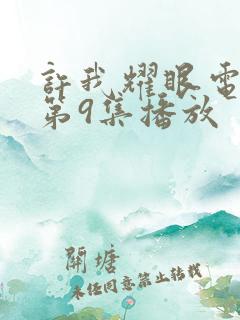 許我耀眼電
第9集播放
開塘
未經同意禁止轉載